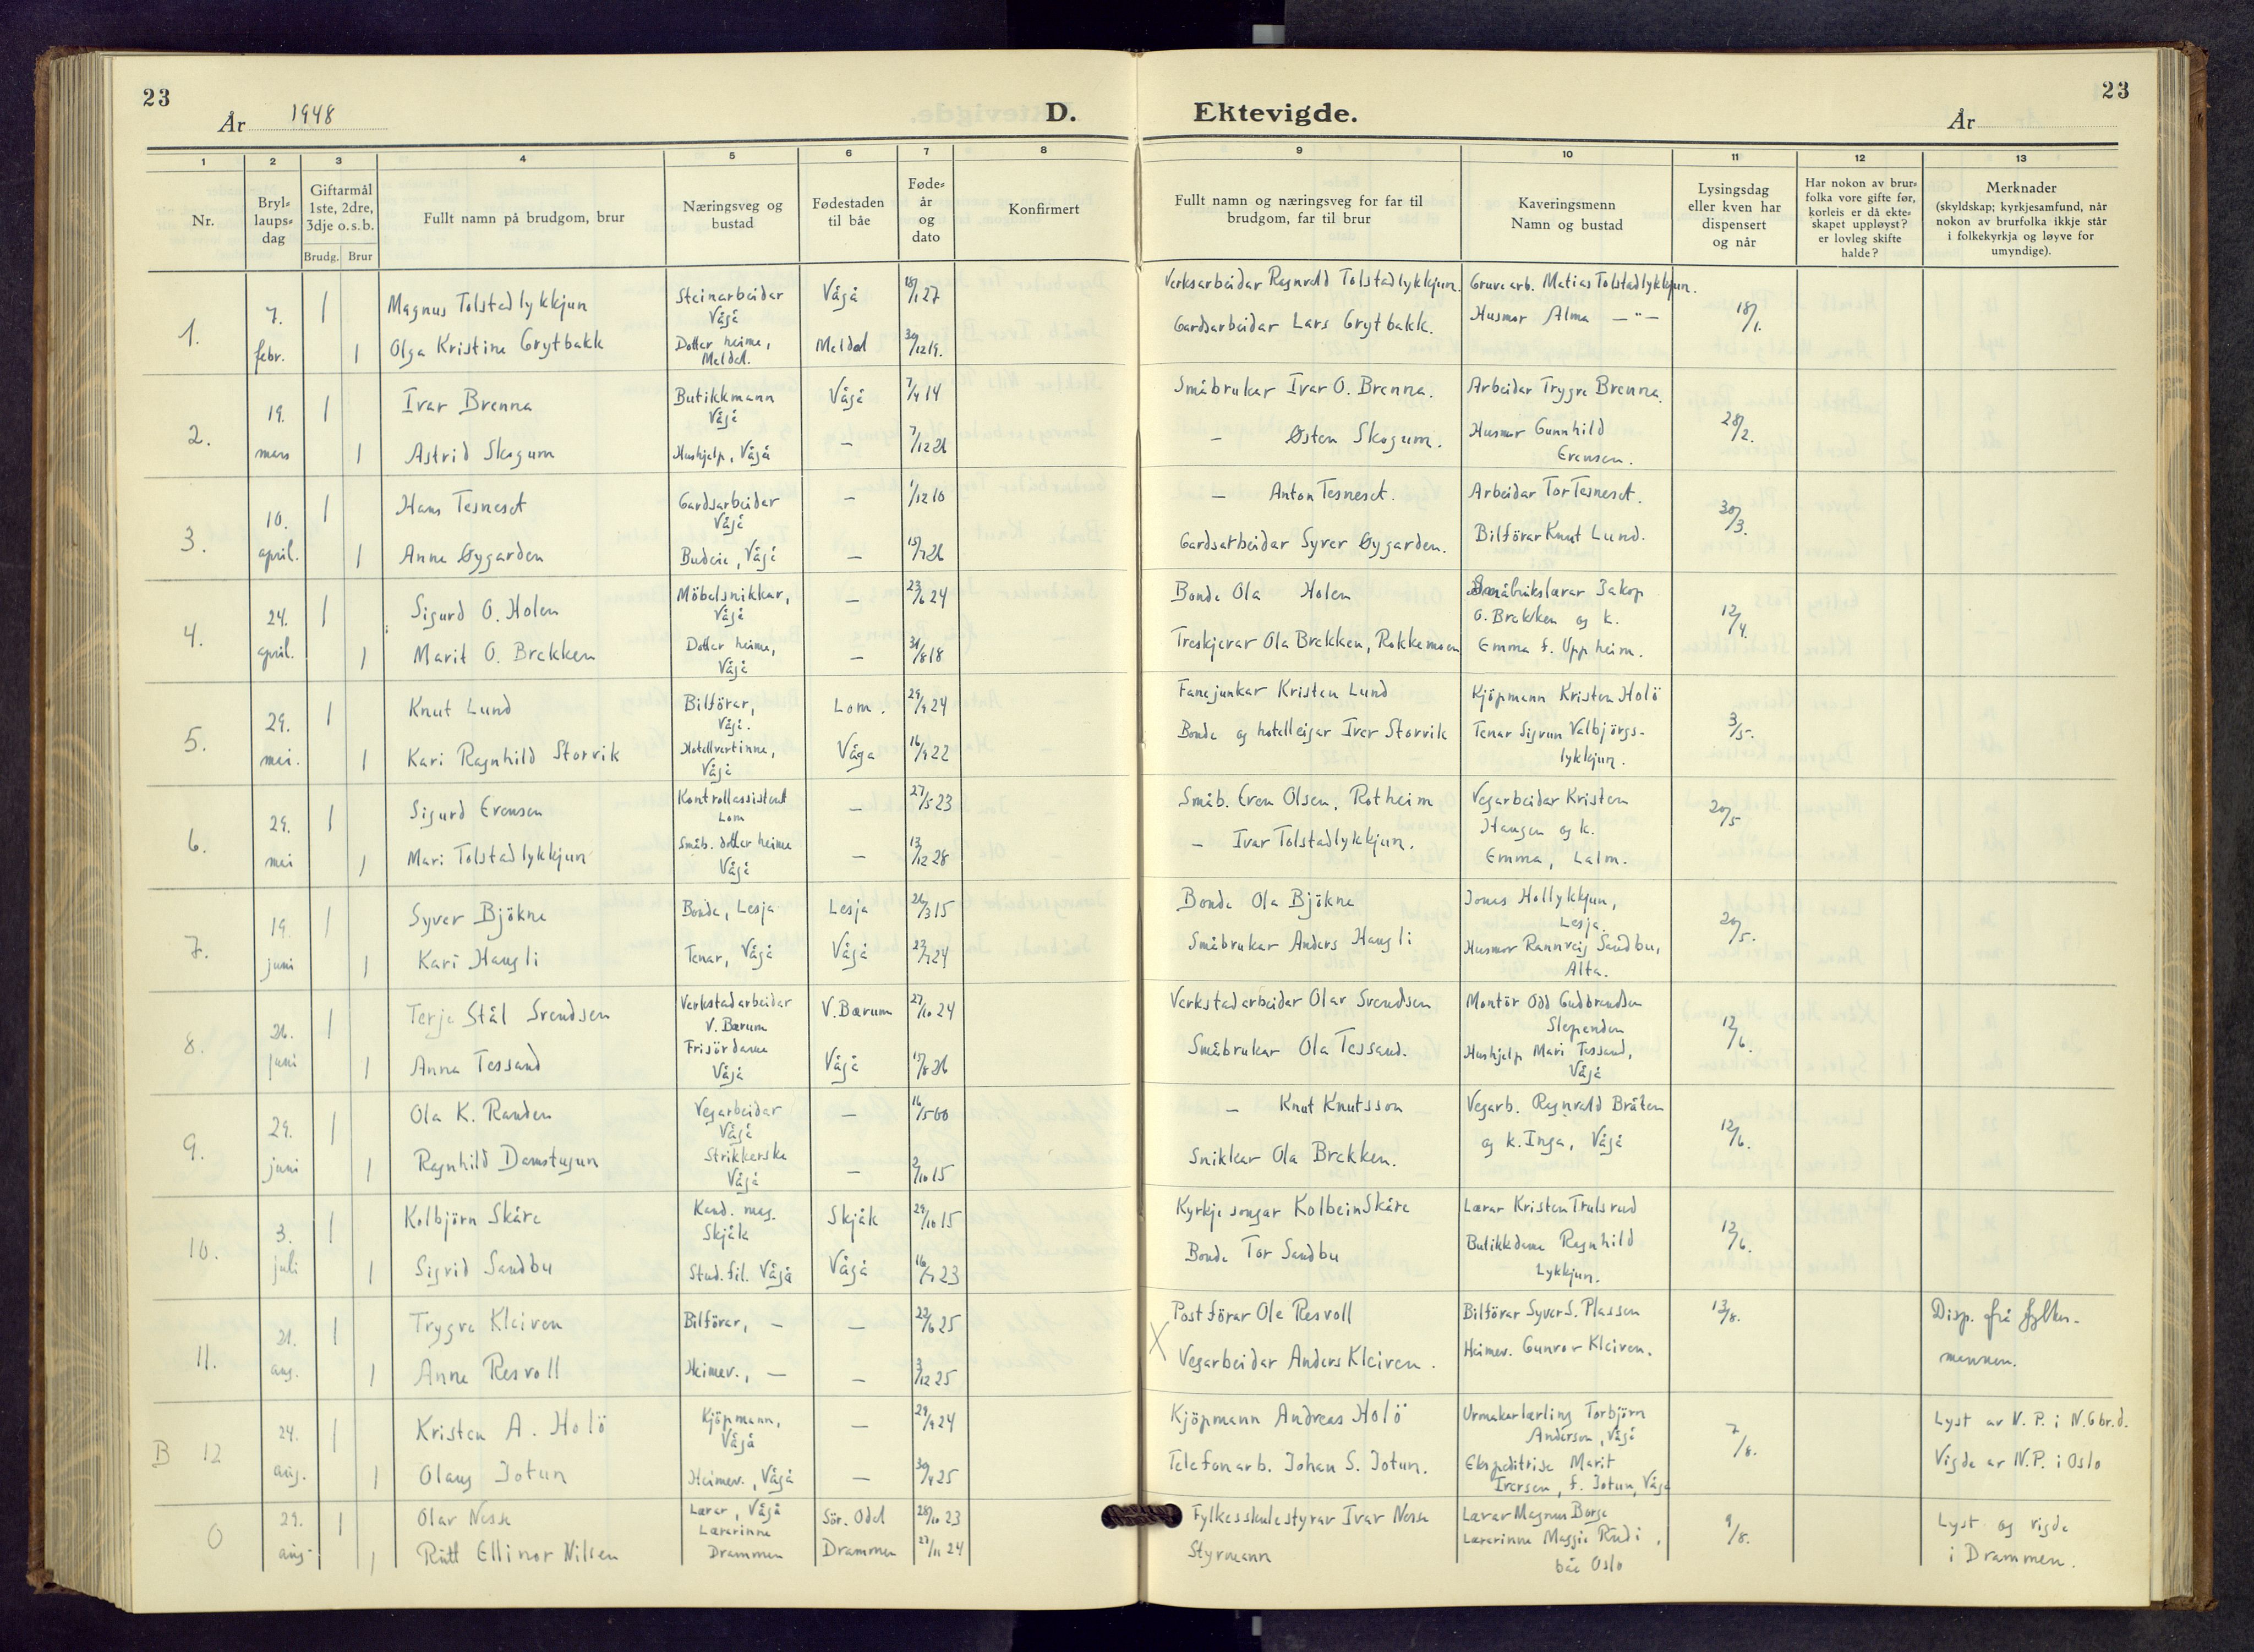 23
År 1948
D.
Ektevigde.
År
23
1 2 3 4 5 6 7 8 9 10 11 12 13
Nr.
Bryl=
laups=
dag
Giftarmål
1ste, 2dre,
3dje o.s.b.
Brudg. Brur
Fullt namn på brudgom, brur
Næringsveg og
bustad
Fødestaden
til båe
Føde=
år
og
dato
Konfirmert
Fullt namn og næringsveg for far til
brudgom, far til brur
Kaveringsmenn
Namn og bustad
Lysingsdag
eller kven har
dispensert
og når
Har nokon av brur=
folka vore gifte før,
korleis er då ekte=
skapet uppløyst?
er lovleg skifte
halde?
Merknader
(skyldskap; kyrkjesamfund, når
nokon av brurfolka ikkje står
i folkekyrkja og løyve for
umyndige).
1.
7.
febr.
1 Magnus Tolstadlykkjun
Steinarbeidar
Vågå
Vågå 18/1 27
Verksarbeidar Ragnvald Tolstadlykkjun.
Gruvearb. Matias Tolstadlykkjun.
18/1.
1 Olga Kristine Grytbakk
Dotter heime,
Meldal.
Meldal 30/12 19.
Gardsarbeidar Lars Grytbakk.
Husmor Alma — " —
2.
19.
mars
1 Ivar Brenna
Butikkmann
Vågå
Vågå 7/4 14
Småbrukar Ivar O. Brenna.
Arbeidar Trygve Brenna.
28/2.
1 Astrid Skogum
Hushjelp, Vågå
— 7/12 21
— Østen Skogum.
Husmor Gunnhild
Evensen.
3.
10.
april.
1 Hans Tesneset
Gardsarbeidar
Vågå
— 1/12 10
— Anton Tesneset.
Arbeidar Tor Tesneset.
30/3.
1 Anne Øygarden
Budeie, Vågå
— 15/7 26
Gardsarbeidar Syver Øygarden.
Bilförar Knut Lund.
4.
24.
april.
1 Sigurd O. Holen
Möbelsnikkar,
Vågå
— 23/6 24
Bonde Ola Holen
Småbrukslærar Jakop
O. Brekken og k.
Emma f. Uppheim.
12/4.
1 Marit O. Brekken
Dotter heime,
Vågå
— 31/8 18
Treskjerar Ola Brekken, Rokkemoen
5.
29.
mai.
1 Knut Lund
Bilförar,
Vågå.
Lom. 29/9 24
Fanejunkar Kristen Lund
Kjöpmann Kristen Holö
3/5.
1 Kari Ragnhild Storvik
Hotellvertinne,
Vågå
Våga 16/9 22
Bonde og hotelleigar Iver Storvik
Tenar Sigrun Valbjörgs-
lykkjun.
6.
29.
mai
1 Sigurd Evensen
Kontrollassistent
Lom
— 27/5 23
Småb. Even Olsen, Rotheim
Vegarbeidar Kristen
Haugen og k.
Emma, Lalm.
20/5
1 Mari Tolstadlykkjun
Småb. dotter heime
Vågå
— 13/12 28
— Ivar Tolstadlykkjun.
7.
19.
juni
1 Syver Bjökne
Bonde, Lesja
Lesja 26/3 15
Bonde Ola Bjökne
Jonas Hollykkjun,
Lesja.
20/5.
1 Kari Haugli
Tenar, Vågå
Vågå 27/7 24
Småbrukar Anders Haugli
Husmor Rannveig Sandbu,
Alta.
8.
26.
juni
1 Terje Stål Svendsen
Verkstadarbeidar
V. Bærum
V. Bærum 27/10 24
Verkstadarbeidar Olav Svendsen
Montör Odd Gudbrandsen
Slependen
12/6.
1 Anna Tessand
Frisördame
Vågå
Vågå 15/8 26
Småbrukar Ola Tessand.
Hushjelp Mari Tessand,
Vågå
9.
29.
juni
1 Ola K. Randen
Vegarbeidar
Vågå
— 16/5 00
— Knut Knutsson
Vegarb. Ragnvald Bråten
og k. Inga, Vågå
12/6.
1 Ragnhild Damstugun
Strikkerske
Vågå
— 2/10 15
Snikkar Ola Brekken.
10.
3.
juli
1 Kolbjörn Skåre
Kand. mag.
Skjåk
Skjåk 29/10 15
Kyrkjesongar Kolbein Skåre
Lærar Kristen Trulsrud
12/6.
1 Sigrid Sandbu
Stud. fil. Vågå
Vågå 16/7 23
Bonde Tor Sandbu
Butikkdame Ragnhild
Lykkjun.
11.
21.
aug.
1 Trygve Kleiven
Bilförar, —
— 22/6 25
X
Postförar Ole Resvoll
Bilförar Syver S. Plassen
13/8.
Disp. frå fylkes-
mannen.
1 Anne Resvoll
Heimev., —
— 3/12 25
Vegarbeidar Anders Kleiven.
Heimev. Gunvor Kleiven.
B 12
24.
aug.
1 Kristen A. Holö
Kjöpmann,
Vågå
— 29/9 24
Kjöpmann Andreas Holö
Urmakarlærling Torbjörn
Anderson, Vågå
7/8.
Lyst av V. P. i N.Gbr.d.
1 Olaug Jotun
Heimev., Vågå
— 30/4 25
Telefonarb. Johan S. Jotun.
Ekspeditrise Marit
Iversen, f. Jotun, Vågå
Vigde av N.P. i Oslo
0
29.
aug.
1 Olav Nesse
Lærar, Vågå
Sör. Odal 28/10 23
Fylkesskulestyrar Ivar Nesse
Lærar Magnus Borge
9/8.
Lyst og vigde
i Drammen.
1 Rutt Ellinor Nilsen
Lærarinne
Drammen
Drammen 27/11 24
Styrmann
Lærarinne Maggie Rudi,
båe Oslo